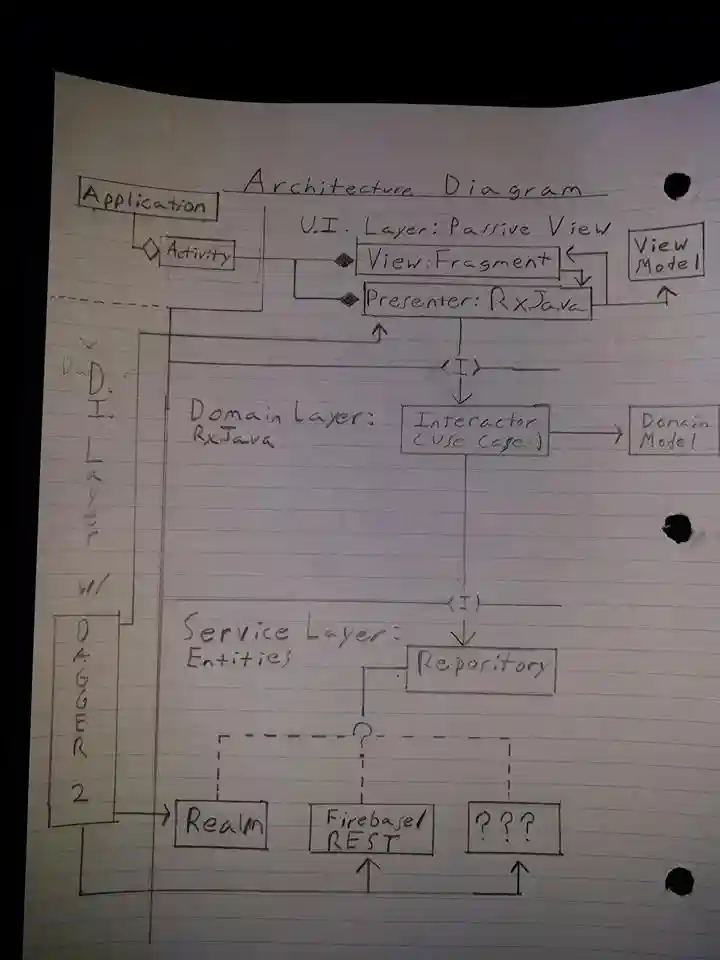 Architecture Diagram
Application
Activity
U.I. Layer: Passive View
View: Fragment
View
Model
Presenter: RxJava
<I>
D.I. Layer w/
DAGGER 2
Domain Layer:
RxJava
Interactor
(Use Case)
Domain
Model
<I>
Service Layer:
Entities
Repository
?
Realm
Firebase/
REST
???